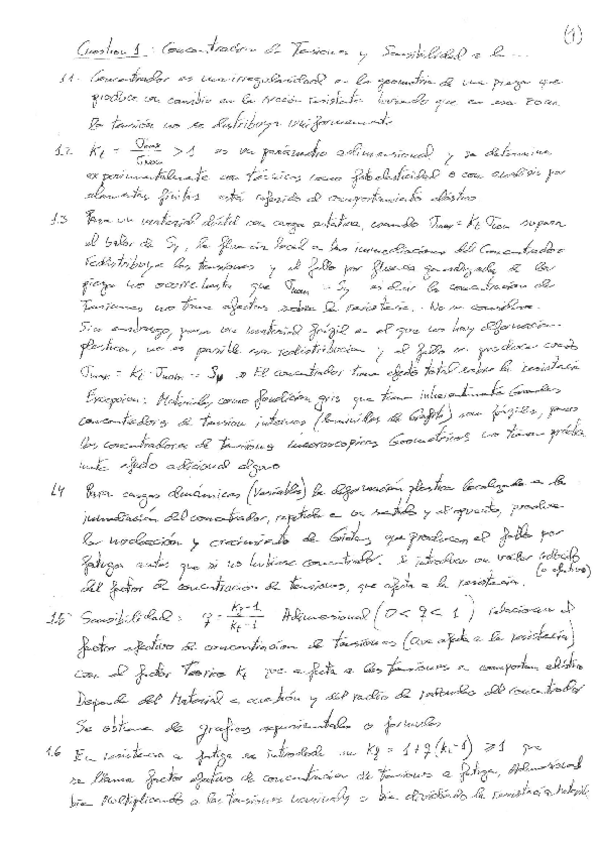 (1)
Cuestion 1: Concentracion de Tensiones y Sensibilidad a la ...
1.1. Concentrador es una irregularidad en la geometria de una pieza que
produce un cambio en la sección resistente haciendo que en esa zona
la tensión no se distribuya uniformemente
1.2 Kt = σmax/σnom > 1 es un parámetro adimensional y se determina
experimentalmente con técnicas como fotoelasticidad o con analisis por
elementos finitos está referido al comportamiento elástico
1.3 Para un material dúctil con carga estatica, cuando σmax = Kt σnom supera
el valor de Sy, la fluencia local a las inmediaciones del Concentrador
redistribuye las tensiones y el fallo por fluencia generalizada de la
pieza no ocurre hasta que σnom = Sy es decir la concentracion de
Tensiones no tiene efectos sobre la resistencia. No se considera.
Sin embargo, para un material frágil en el que no hay deformacion
plastica, no es posible esa redistribucion y el fallo se produce cuando
σmax = Kt · σnom = Su → El concentrador tiene efecto total sobre la resistencia
Excepcion: Materiales como fundicion gris que tienen inherentemente Grandes
concentradores de tension internos (laminillas de Grafito) son frágiles, pero
los concentradores de tensiones macroscopicos Geometricos no tienen práctica
mente efecto adicional alguno
1.4 Para cargas dinámicas (variables) la deformación plastica localizada en la
inmediación del concentrador, repetida en un sentido y el opuesto, produce
la nucleación y crecimiento de Grietas que producen el fallo por
fatiga antes que si no hubiese concentrador. Se introduce un valor reducido
(o efectivo)
del factor de concentracion de tensiones, que afecta a la resistencia.
1.5 Sensibilidad: q = Kf-1/Kt-1 Adimensional (0<q<1) relaciona el
factor efectivo de concentracion de tensiones (Que afecta a la resistencia)
con el factor Teorico Kt que afecta a las tensiones en comportam elástico
Depende del Material en cuestión y del radio de del concentrador
Se obtiene de graficos experimentales o formulas
1.6 En resistencia a fatiga se introduce un Kf = 1+q(Kt-1) ≥1 que
se llama factor efectivo de concentracion de tensiones a fatiga, Adimensional
bien multiplicando a las tensiones nominales o bien dividiendo la resistencia